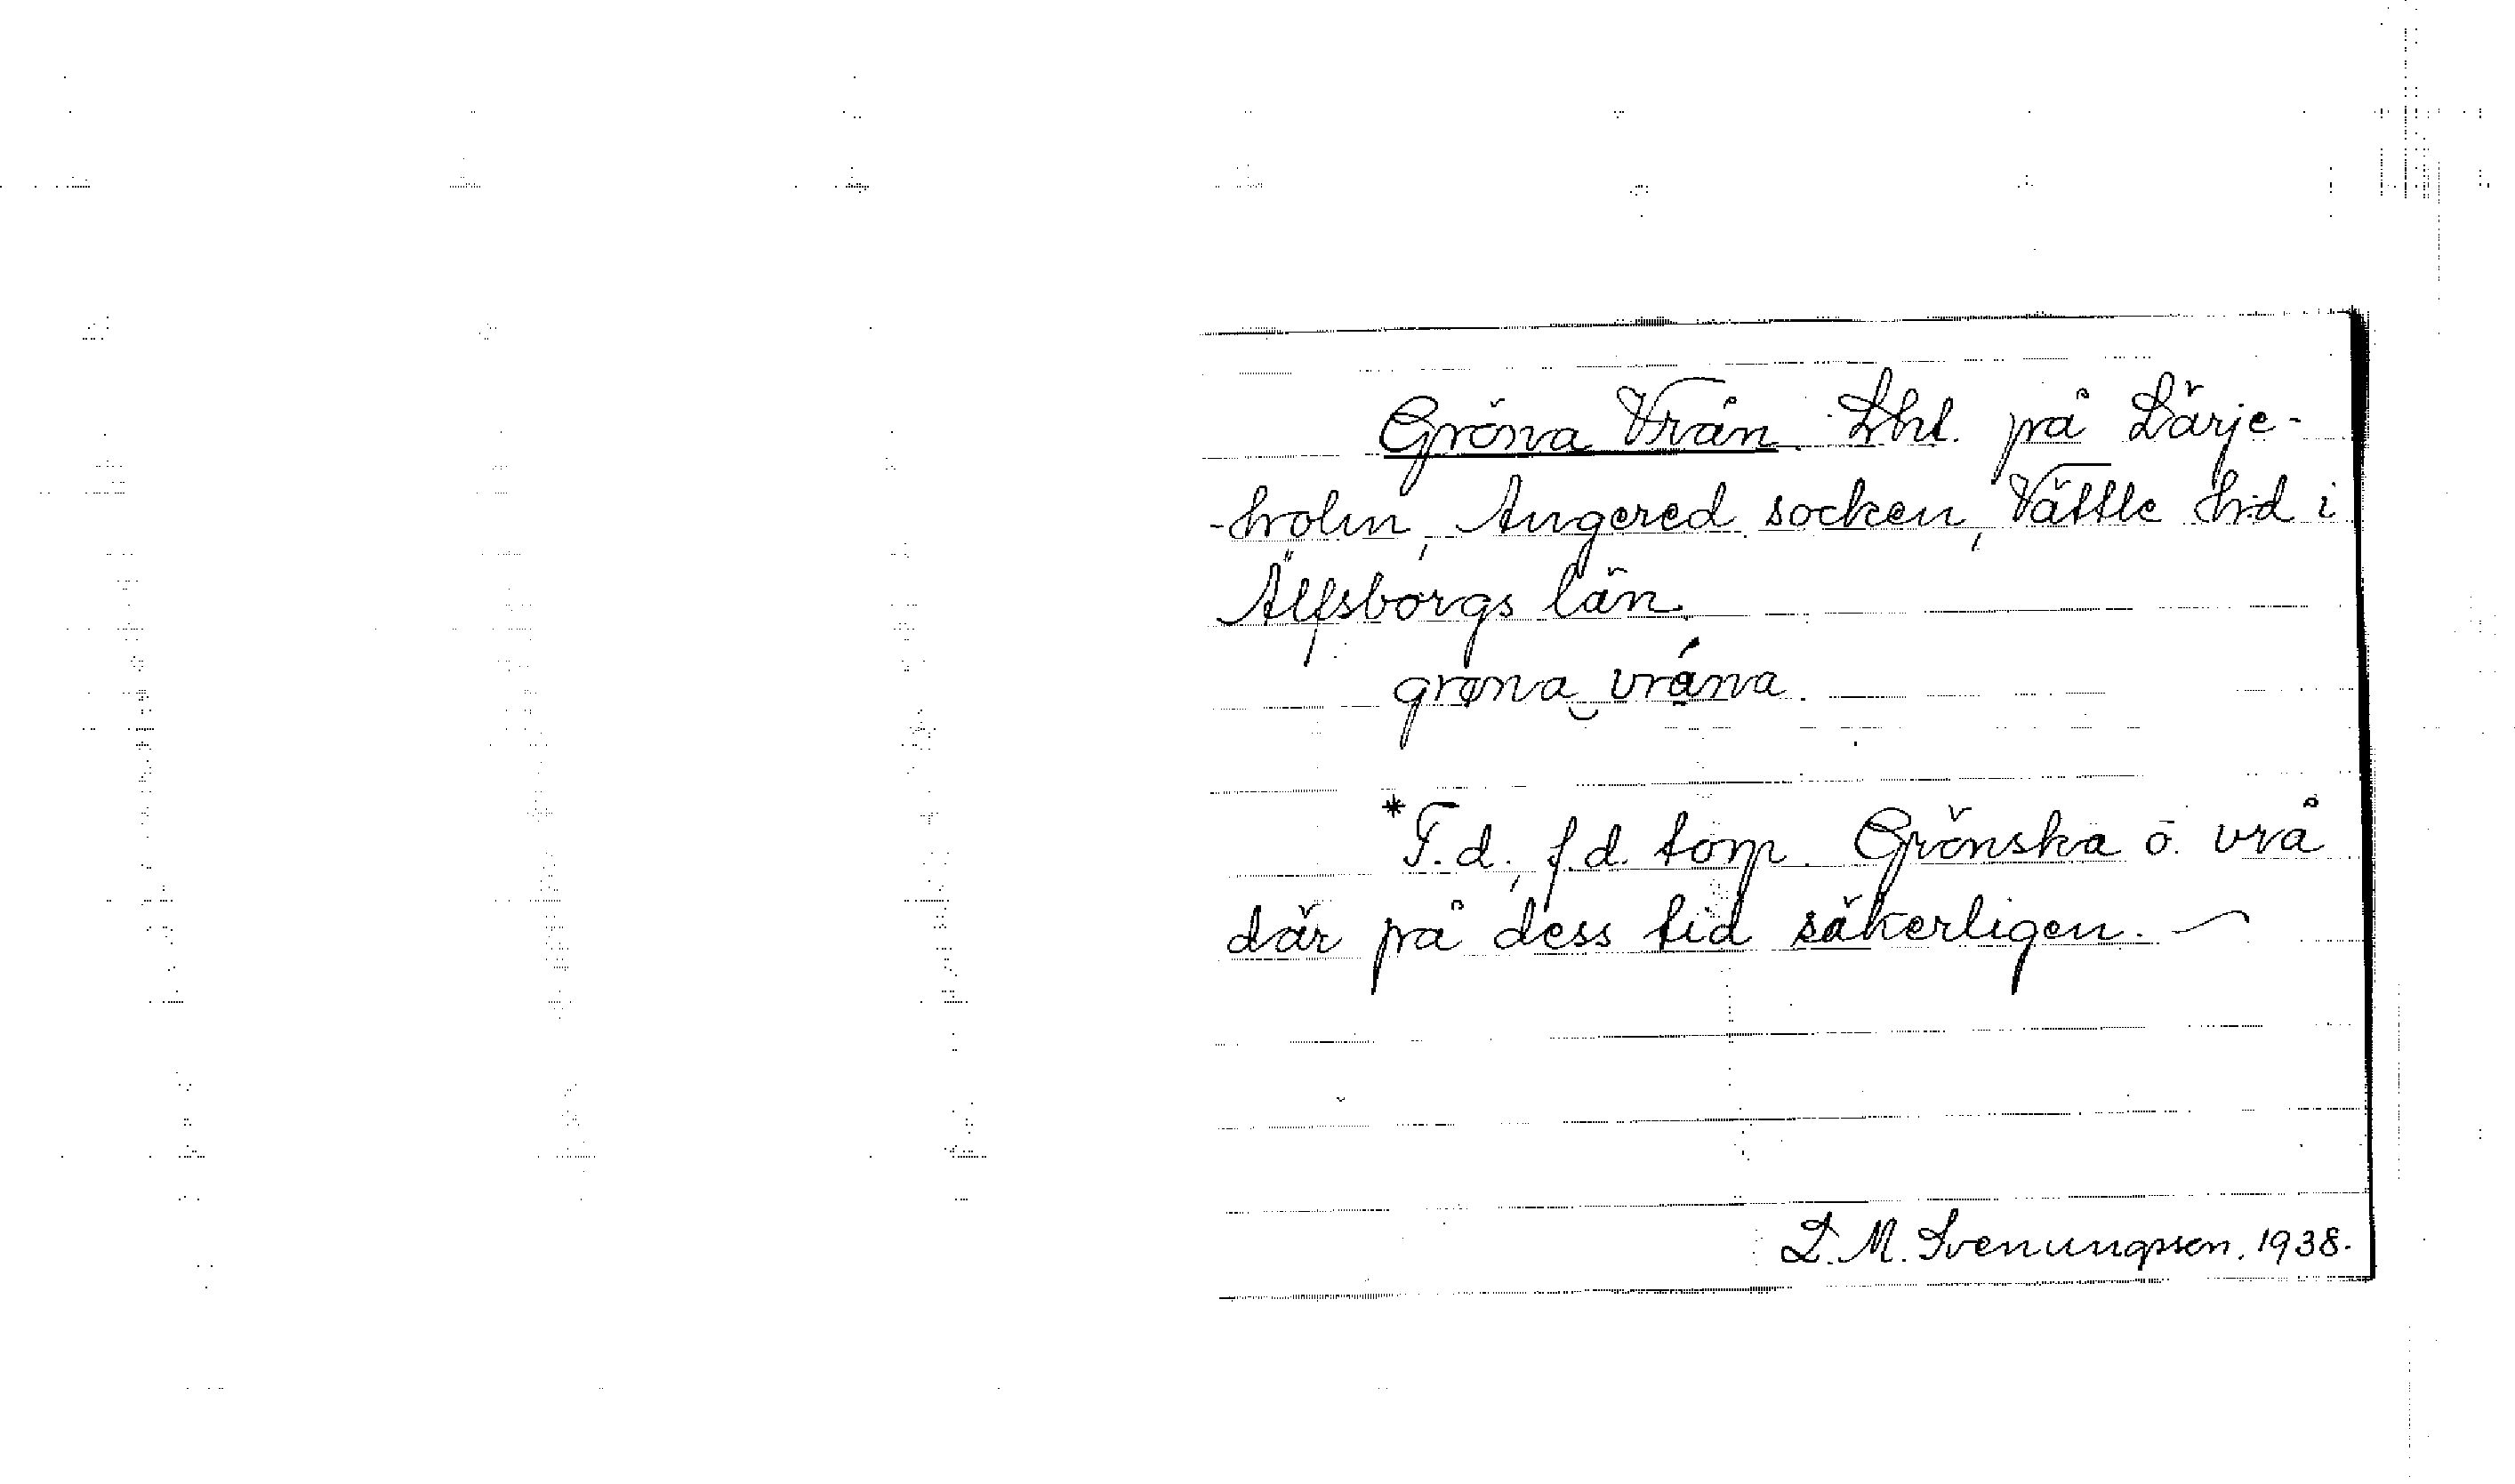 Gröna Vrån Lht. på Lärje-
-holm, Angered socken, Vättle hd i
Älfsborgs län.
grøna vrána.
*F.d., f.d. torp. Grönska o. vrå
där på dess tid säkerligen.
L. M. Svenungsson. 1938.